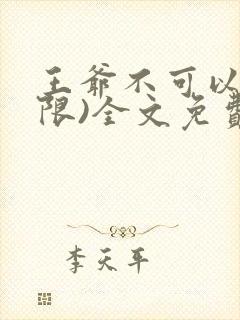 王爷不可以
限)全文免費
李天平